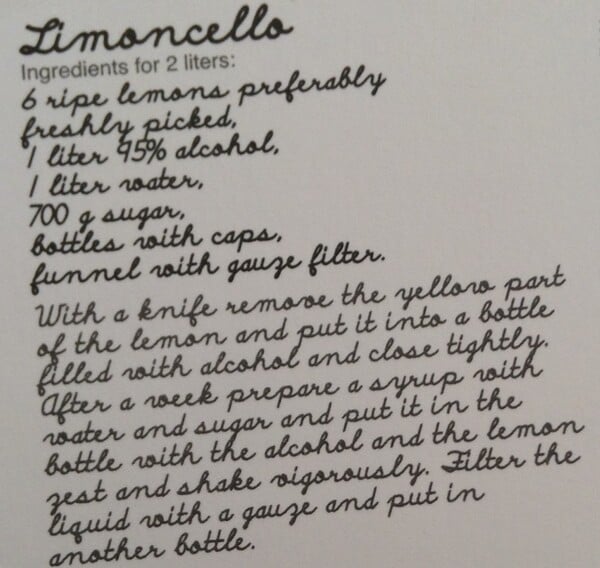 Limoncello
Ingredients for 2 liters:
6 ripe lemons preferably
freshly picked,
1 liter 95% alcohol,
1 liter water,
700 g sugar,
bottles with caps,
funnel with gauze filter.
With a knife remove the yellow part
of the lemon and put it into a bottle
filled with alcohol and close tightly.
After a week prepare a syrup with
water and sugar and put it in the
bottle with the alcohol and the lemon
zest and shake vigorously. Filter the
liquid with a gauze and put in
another bottle.